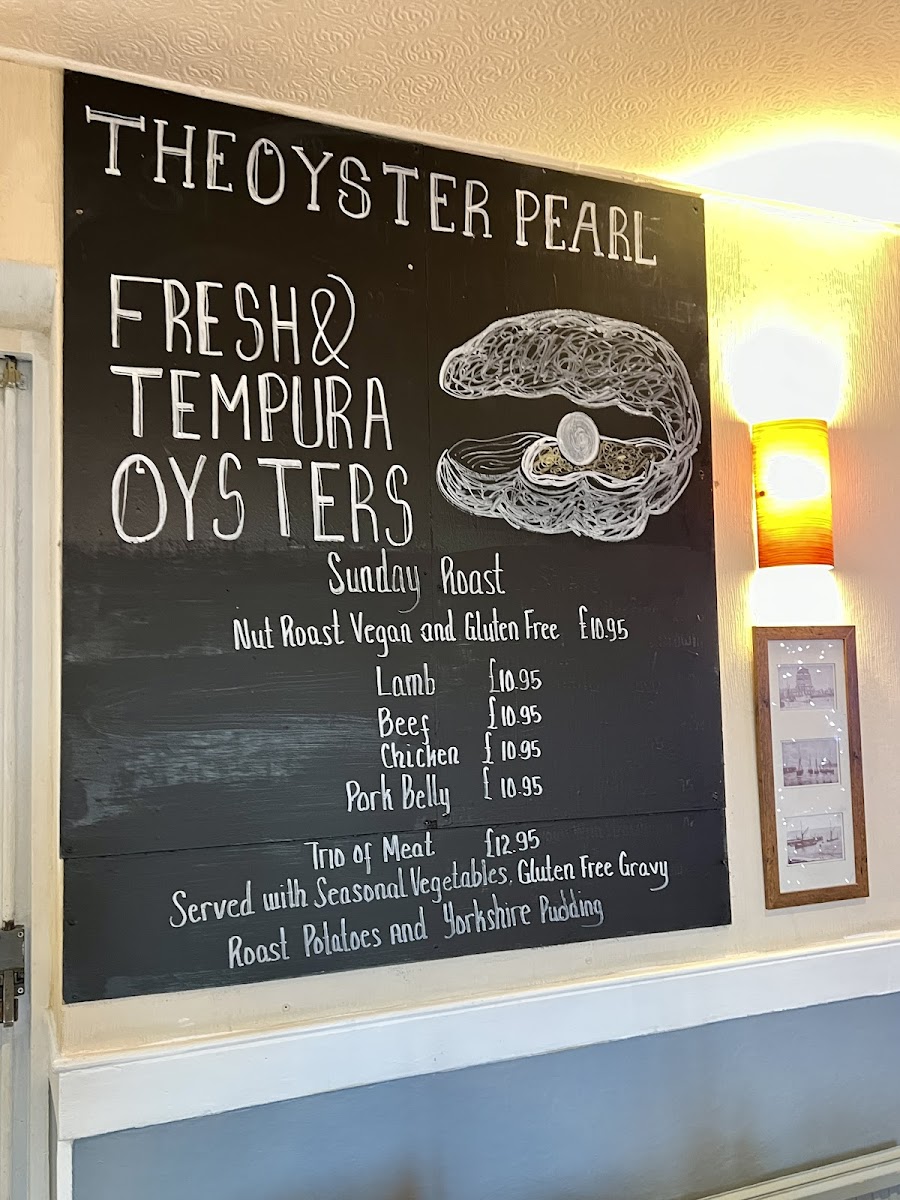 THE OYSTER PEARL
FRESH &
TEMPURA
OYSTERS
Sunday Roast
Nut Roast Vegan and Gluten Free £10.95
Lamb £10.95
Beef £10.95
Chicken £10.95
Pork Belly £10.95
Trio of Meat £12.95
Served with Seasonal Vegetables, Gluten Free Gravy
Roast Potatoes and Yorkshire Pudding